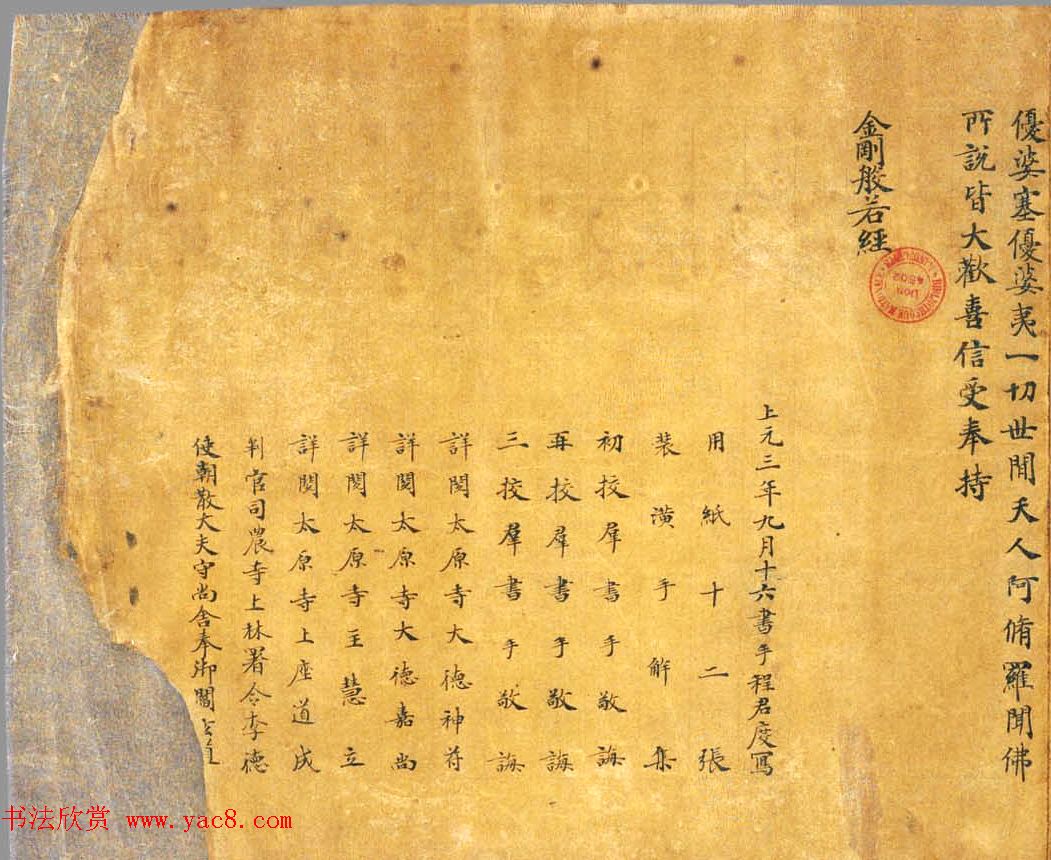 優婆塞優婆夷一切世間天人阿脩羅聞佛
所說皆大歡喜信受奉持
金剛般若經
上元三年九月十六書手程君度寫
用紙十二張
裝潢手解集
初挍羣書手敬誨
再挍羣書手敬誨
三挍羣書手敬誨
詳閱太原寺大德神苻
詳閱太原寺大德嘉尚
詳閱太原寺主慧立
詳閱太原寺上座道成
判官司農寺上林署令李德
使朝散大夫守尚舍奉御閻
DON
4502
书法欣赏 www.yac8.com